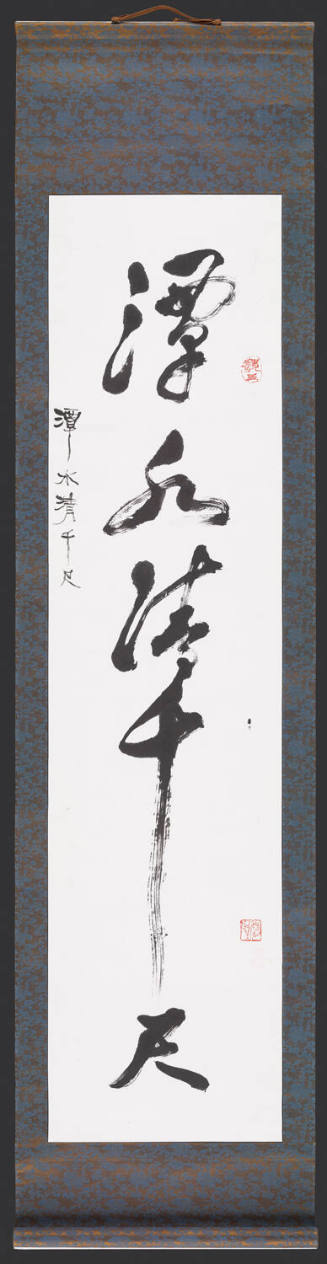 潭水清千尺
潭水清千尺